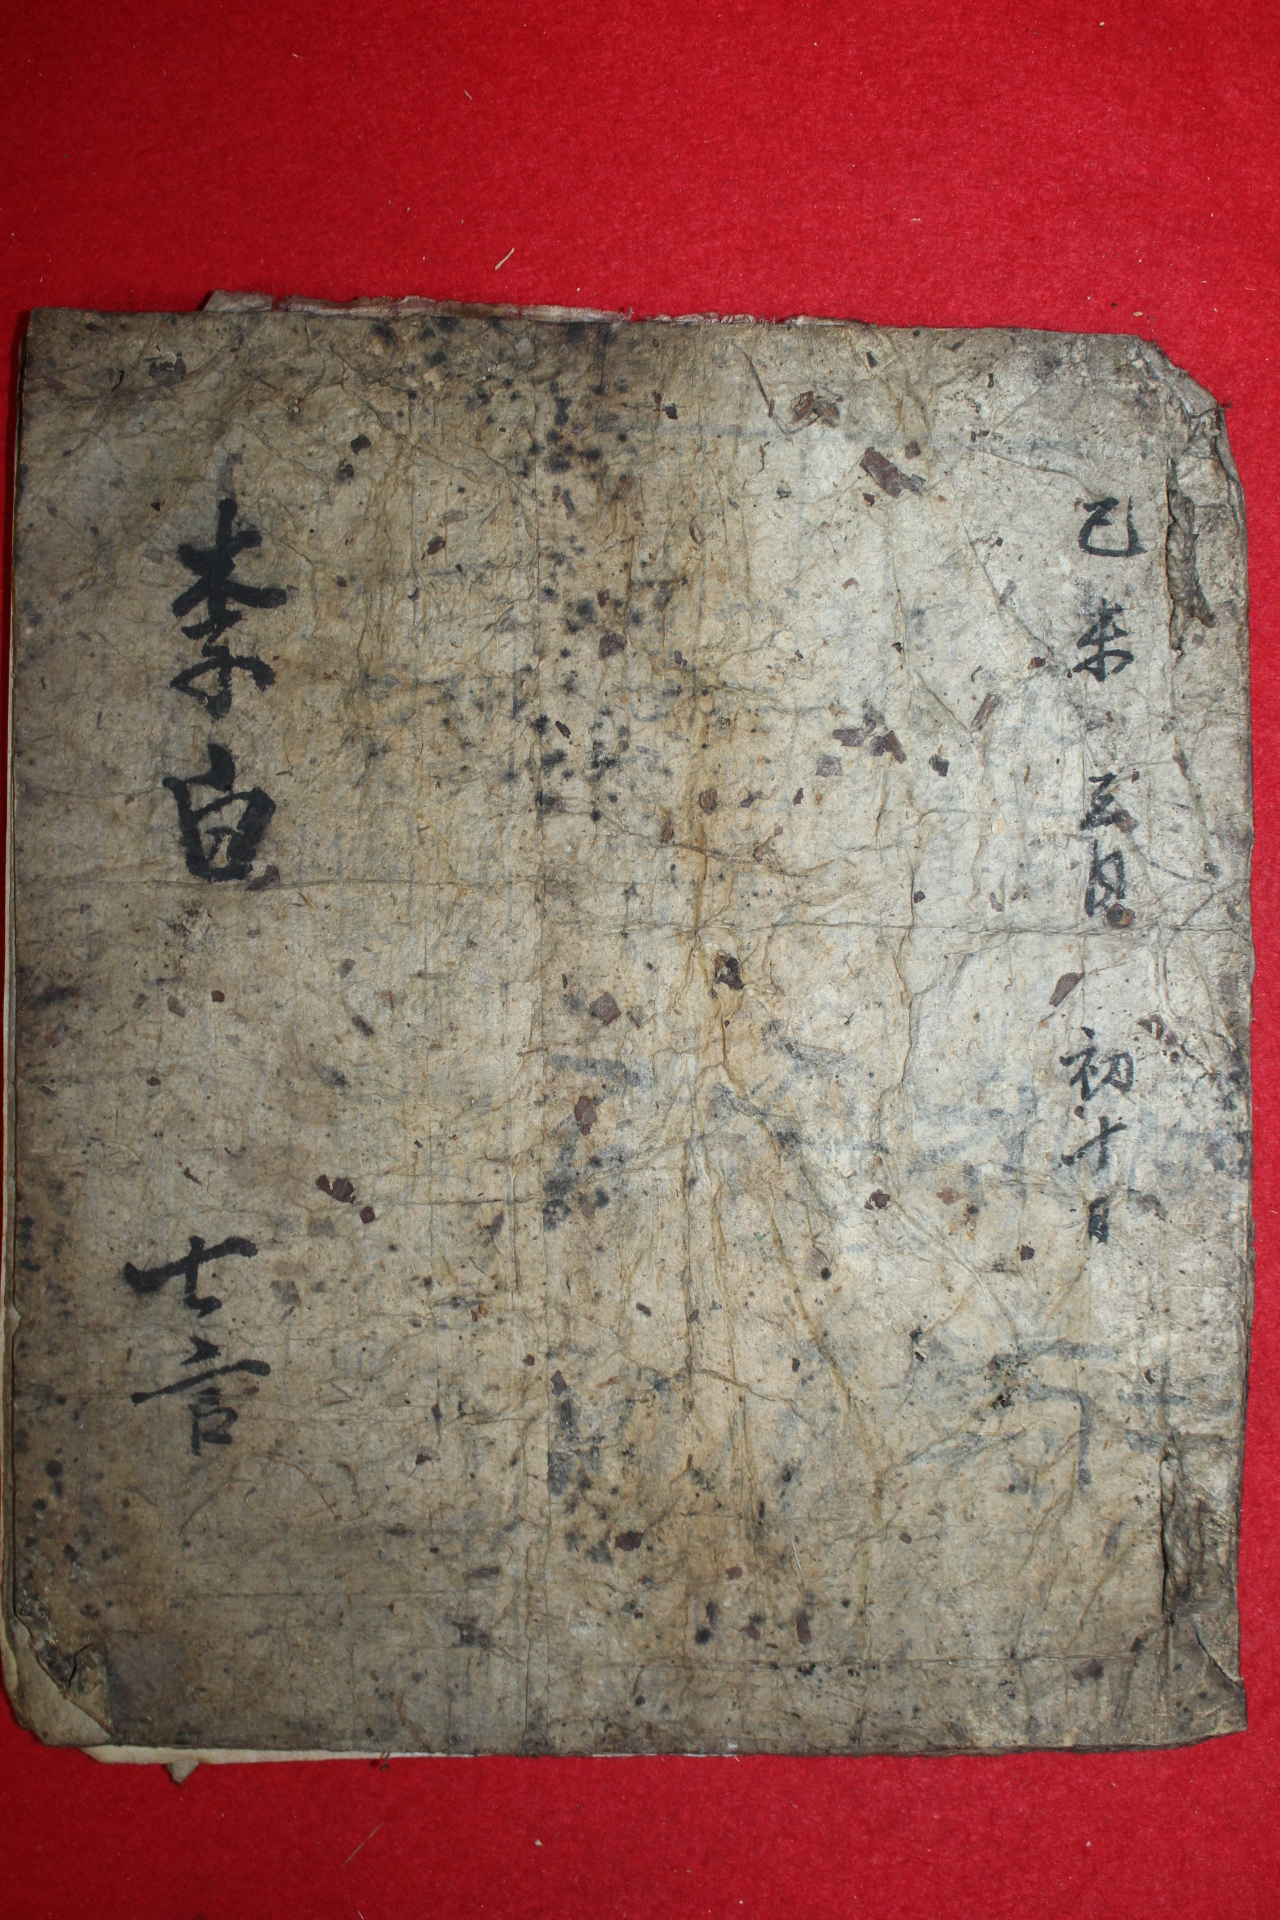 己未 五月 初十日
李白 七言